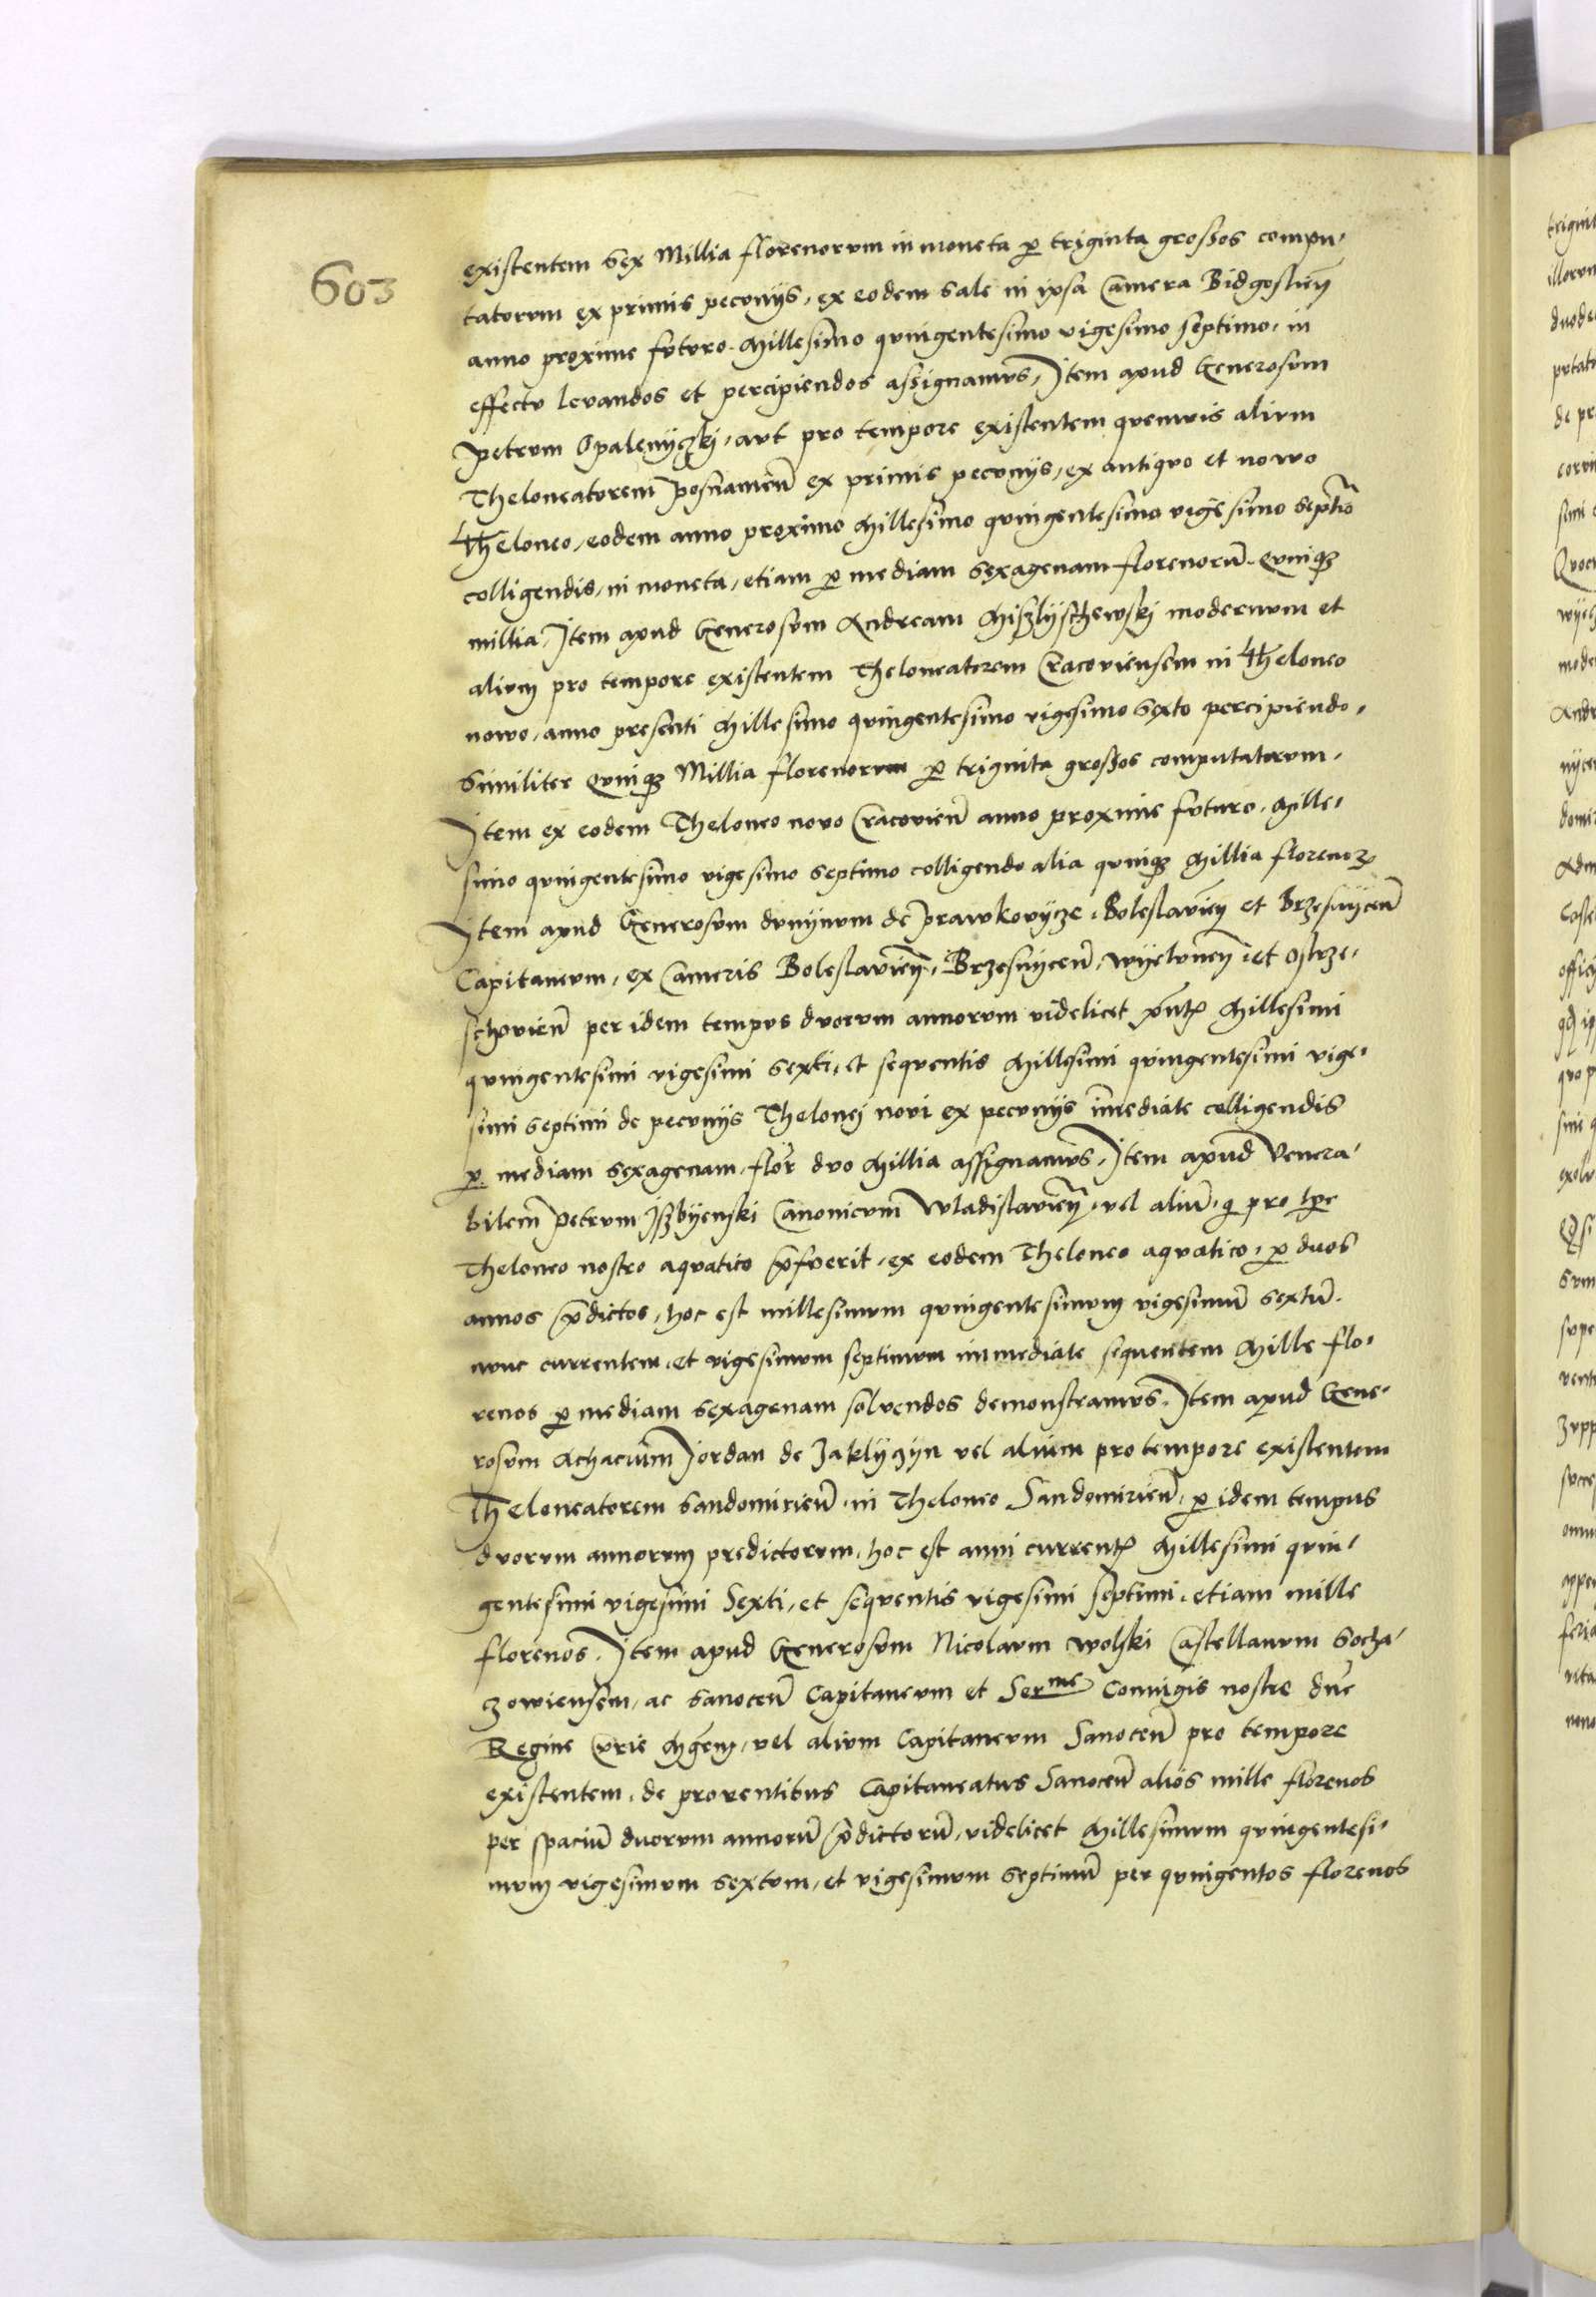 603
existentem sex Millia florenorum in moneta per triginta grossos compu-
tatorum ex primis pecunijs, ex eodem sale in ipsa Camera Bidgostien̄
anno proxime futuro Millesimo quingentesimo vigesimo septimo, in
effectu levandos et percipiendos assignamus, Item apud Generosum
Petrum Opalenyczkj, aut pro tempore existentem quemvis alium
Theloneatorem Posnanien̄ ex primis pecunijs, ex antiquo et nowo
Theloneo, eodem anno proximo Millesimo quingentesimo vigesimo septīo
colligendis, in moneta, etiam per mediam sexagenam florenorū. quinqȝ
millia, Item apud Generosum Andream Miszlyschewskj modernum et
alium pro tempore existentem Theloneatorem Cracoviensem in Theloneo
nowo, anno presenti Millesimo quingentesimo vigesimo sexto percipiendo,
similiter quinqȝ Millia florenorum per triginta grossos computatorum,
Item ex eodem Theloneo novo Cracovien̄ anno proxime futuro, Mille-
simo quingentesimo vigesimo septimo colligendo alia quinqȝ Millia florenoꝝ
Item apud Generosum dunynum de Prawkovycze, Boleslavien̄ et Brzesnycen̄
Capitaneum, ex Cameris Boleslavien̄, Brzesnycen̄, wyelunen̄ et Ostrze-
schovien̄ per idem tempus duorum annorum videlicet pn̄tꝭ Millesimi
quingentesimi vigesimi sexti, et sequentis Millesimi quingentesimi vige-
simi septimi de pecunijs Thelonej novi ex pecunijs īmediate colligendis
per mediam sexagenam, flor̄ duo Millia assignamus, Item apud Venera-
bilem Petrum Iszbyenski Canonicum Wladislavien̄, vel aliū, q pro tpe
Theloneo nostro aquatico p̄fuerit, ex eodem Theloneo aquatico, per duos
annos p̄dictos, hoc est millesimum quingentesimum vigesimū sextū.
nunc currentem, et vigesimum septimum immediate sequentem Mille flo-
renos per mediam sexagenam solvendos demonstramus. Item apud Gene-
rosum Achacium Jordan de Zaklyczyn vel alium pro tempore existentem
Theloneatorem Sandomirien̄, in Theloneo Sandomirien̄, per idem tempus
duorum annorum predictorum, hoc est anni currentꝭ Millesimi quin-
gentesimi vigesimi Sexti, et sequentis vigesimi septimi, etiam mille
florenos. Item apud Generosum Nicolaum wolski Castellanum Socha-
zowiensem, ac Sanocen̄ Capitaneum et Serme Coniugis nostre dn̄e
Regine Curie Mgr̄em, vel alium Capitaneum Sanocen̄ pro tempore
existentem, de proventibus Capitaneatus Sanocen̄ alios mille florenos
per spaciū duorum annorū p̄dictorū, videlicet Millesimum quingentesi-
mum vigesimum sextum, et vigesimum septimū per quingentos florenos